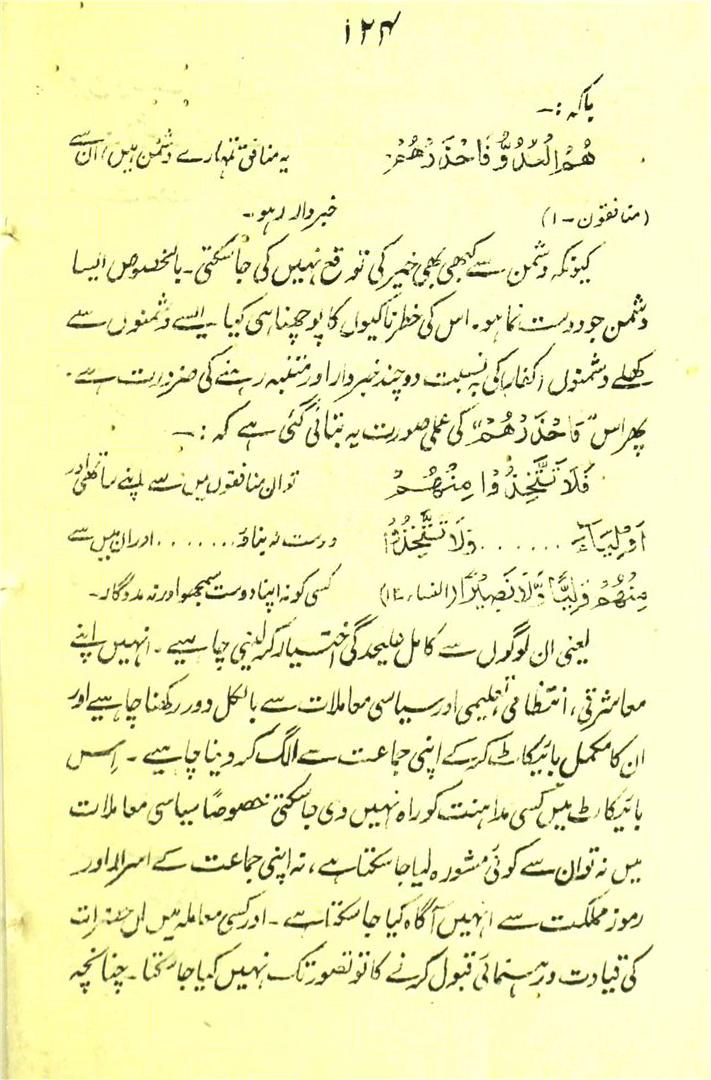 ۱۲۴
ہاکہ :۔
هُمُ الْعَدُوُّ فَاحْذَرْهُمْ یہ منافق تمہارے دشمن ہیں، ان سے
(منافقون - ۱) خبردار رہو۔
کیونکہ دشمن سے کبھی بھی خیر کی توقع نہیں کی جا سکتی۔ بالخصوص ایسا
دشمن جو دوست نما ہو۔ اس کی خطرناکیوں کا پوچھنا ہی کیا۔ ایسے دشمنوں سے
کھلے دشمنوں (کفار) کی بہ نسبت دو چند خبردار اور متنبہ رہنے کی ضرورت ہے۔
پھر اس ”فَاحْذَرْهُمْ“ کی عملی صورت یہ بتائی گئی ہے کہ :۔
فَلَا تَتَّخِذُوا مِنْهُمْ تو ان منافقوں میں سے اپنے ساتھی اور
اَوْلِيَآءَ ...... وَلَا تَتَّخِذُوْا دوست نہ بناؤ ........ اور ان میں سے
مِنْهُمْ وَلِيًّا وَّلَا نَصِيْرًا (النساء ۱۲) کسی کو نہ اپنا دوست سمجھو اور نہ مددگار۔
یعنی ان لوگوں سے کامل علیحدگی اختیار کر لینی چاہیے۔ انہیں اپنے
معاشرتی، انتظامی، تعلیمی اور سیاسی معاملات سے بالکل دور رکھنا چاہیے اور
ان کا مکمل بائیکاٹ کر کے اپنی جماعت سے الگ کر دینا چاہیے۔ اس
بائیکاٹ میں کسی مداہنت کو راہ نہیں دی جا سکتی خصوصاً سیاسی معاملات
میں نہ تو ان سے کوئی مشورہ لیا جا سکتا ہے، نہ اپنی جماعت کے اسرار اور
رموز مملکت سے انہیں آگاہ کیا جا سکتا ہے۔ اور کسی معاملہ میں ان حضرات
کی قیادت و رہنمائی قبول کرنے کا تو تصور تک نہیں کیا جا سکتا۔ چنانچہ